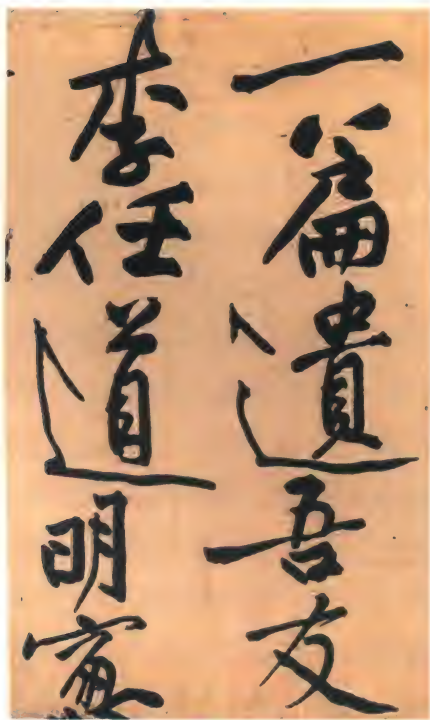 一篇遺吾友
李任道明窻